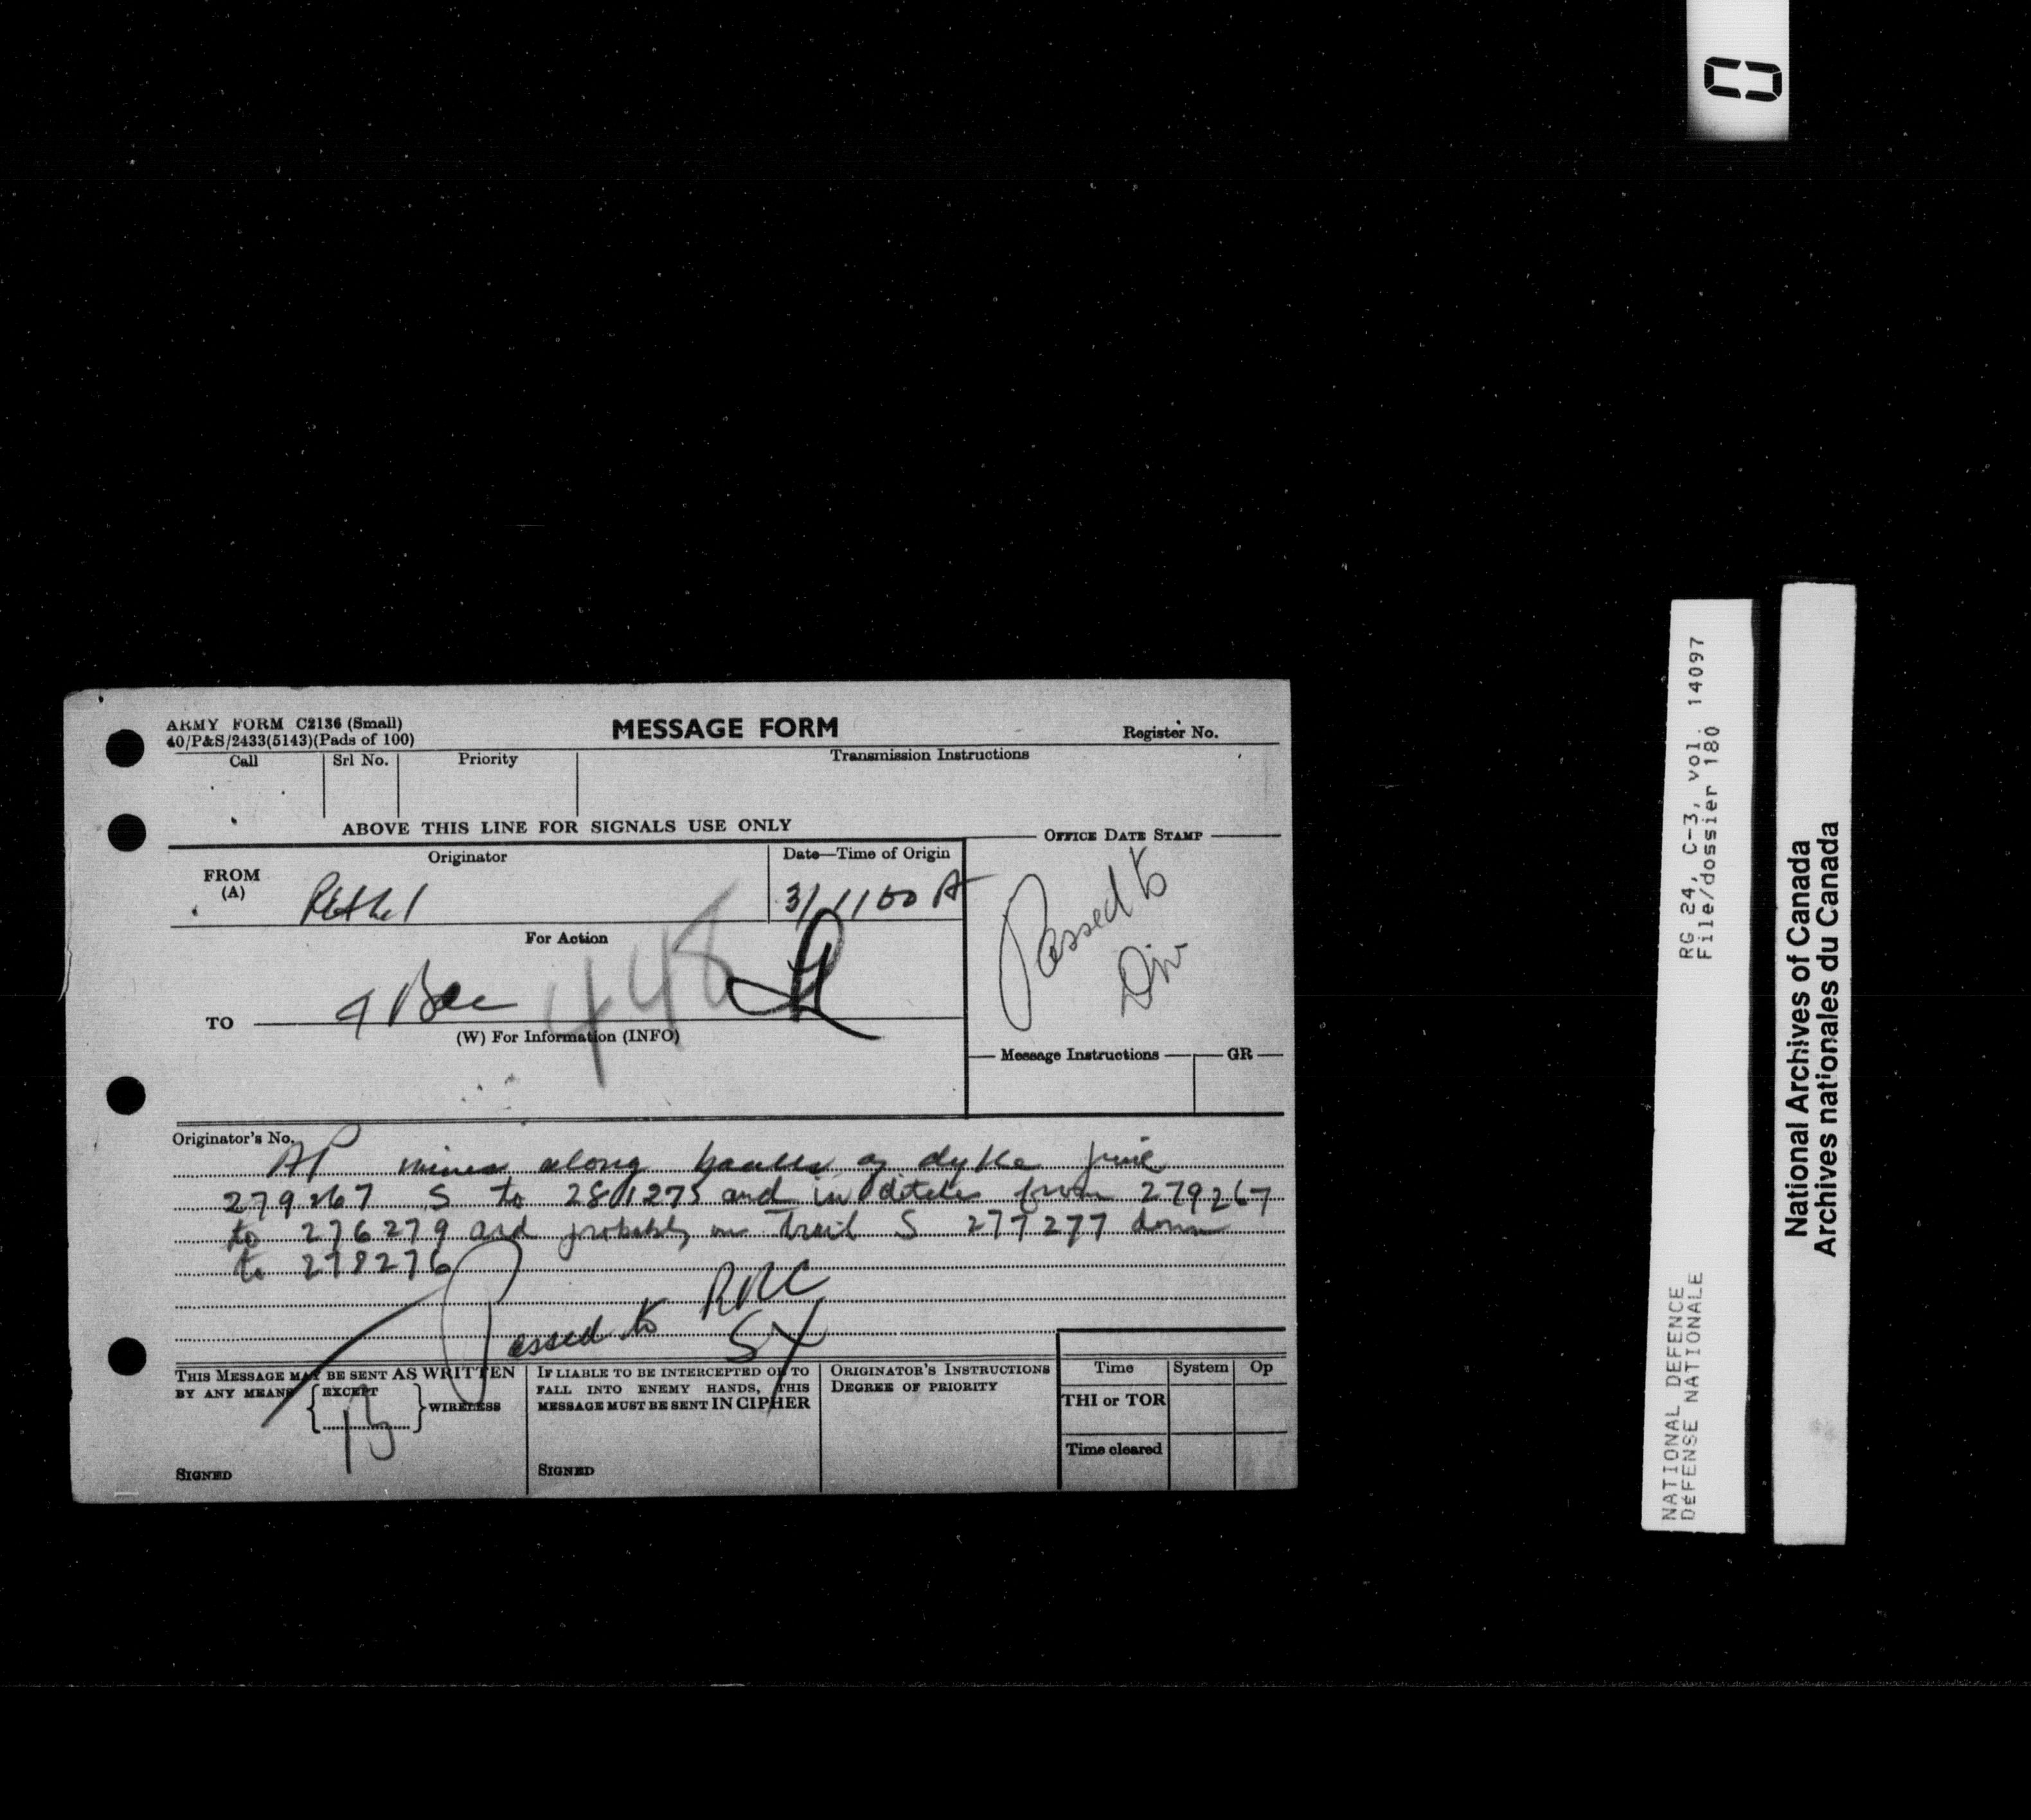 ARMY FORM C2136 (Small)
40/P&S/2433(5143)(Pads of 100)
MESSAGE FORM
Register No.
Call
Srl No.
Priority
Transmission Instructions
ABOVE THIS LINE FOR SIGNALS USE ONLY
OFFICE DATE STAMP
FROM
(A)
Originator
Date—Time of Origin
31 1100 A
Passed to
Div
For Action
448
TO
(W) For Information (INFO)
Message Instructions
GR
Originator's No.
AP mines along banks of dyke
279267 S to 281275 and in ditches from 279267
to 276279 and probably on trail S 277277 down
to 278276
Passed to
THIS MESSAGE MAY BE SENT AS WRITTEN
BY ANY MEANS
EXCEPT
WIRELESS
SIGNED
IF LIABLE TO BE INTERCEPTED OR TO
FALL INTO ENEMY HANDS, THIS
MESSAGE MUST BE SENT IN CIPHER
SIGNED
ORIGINATOR'S INSTRUCTIONS
DEGREE OF PRIORITY
Time
System
Op
THI or TOR
Time cleared
RG 24, C-3, vol. 14097
File/dossier 180
NATIONAL DEFENCE
DéFENSE NATIONALE
National Archives of Canada
Archives nationales du Canada